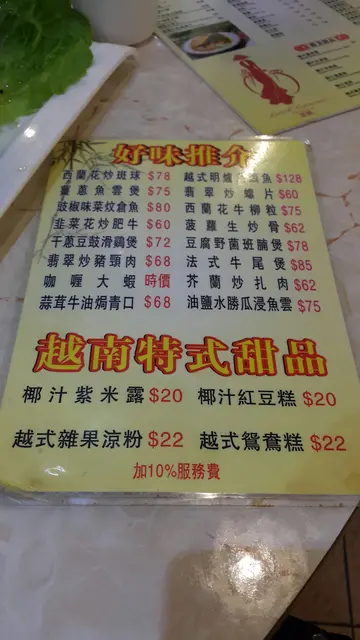 好味推介
西蘭花炒斑球 $78 越式明爐 魚 $128
薑蔥魚雲煲 $75 翡翠炒蟶片 $60
豉椒味菜炆倉魚 $80 西蘭花牛柳粒 $75
韭菜花炒肥牛 $60 菠蘿生炒骨 $62
干蔥豆豉滑鷄煲 $72 豆腐野菌班腩煲 $78
翡翠炒豬頸肉 $68 法式牛尾煲 $85
咖喱大蝦 時價 芥蘭炒扎肉 $62
蒜茸牛油焗青口 $68 油鹽水勝瓜浸魚雲 $75
越南特式甜品
椰汁紫米露 $20 椰汁紅豆糕 $20
越式雜果涼粉 $22 越式鴛鴦糕 $22
加10%服務費